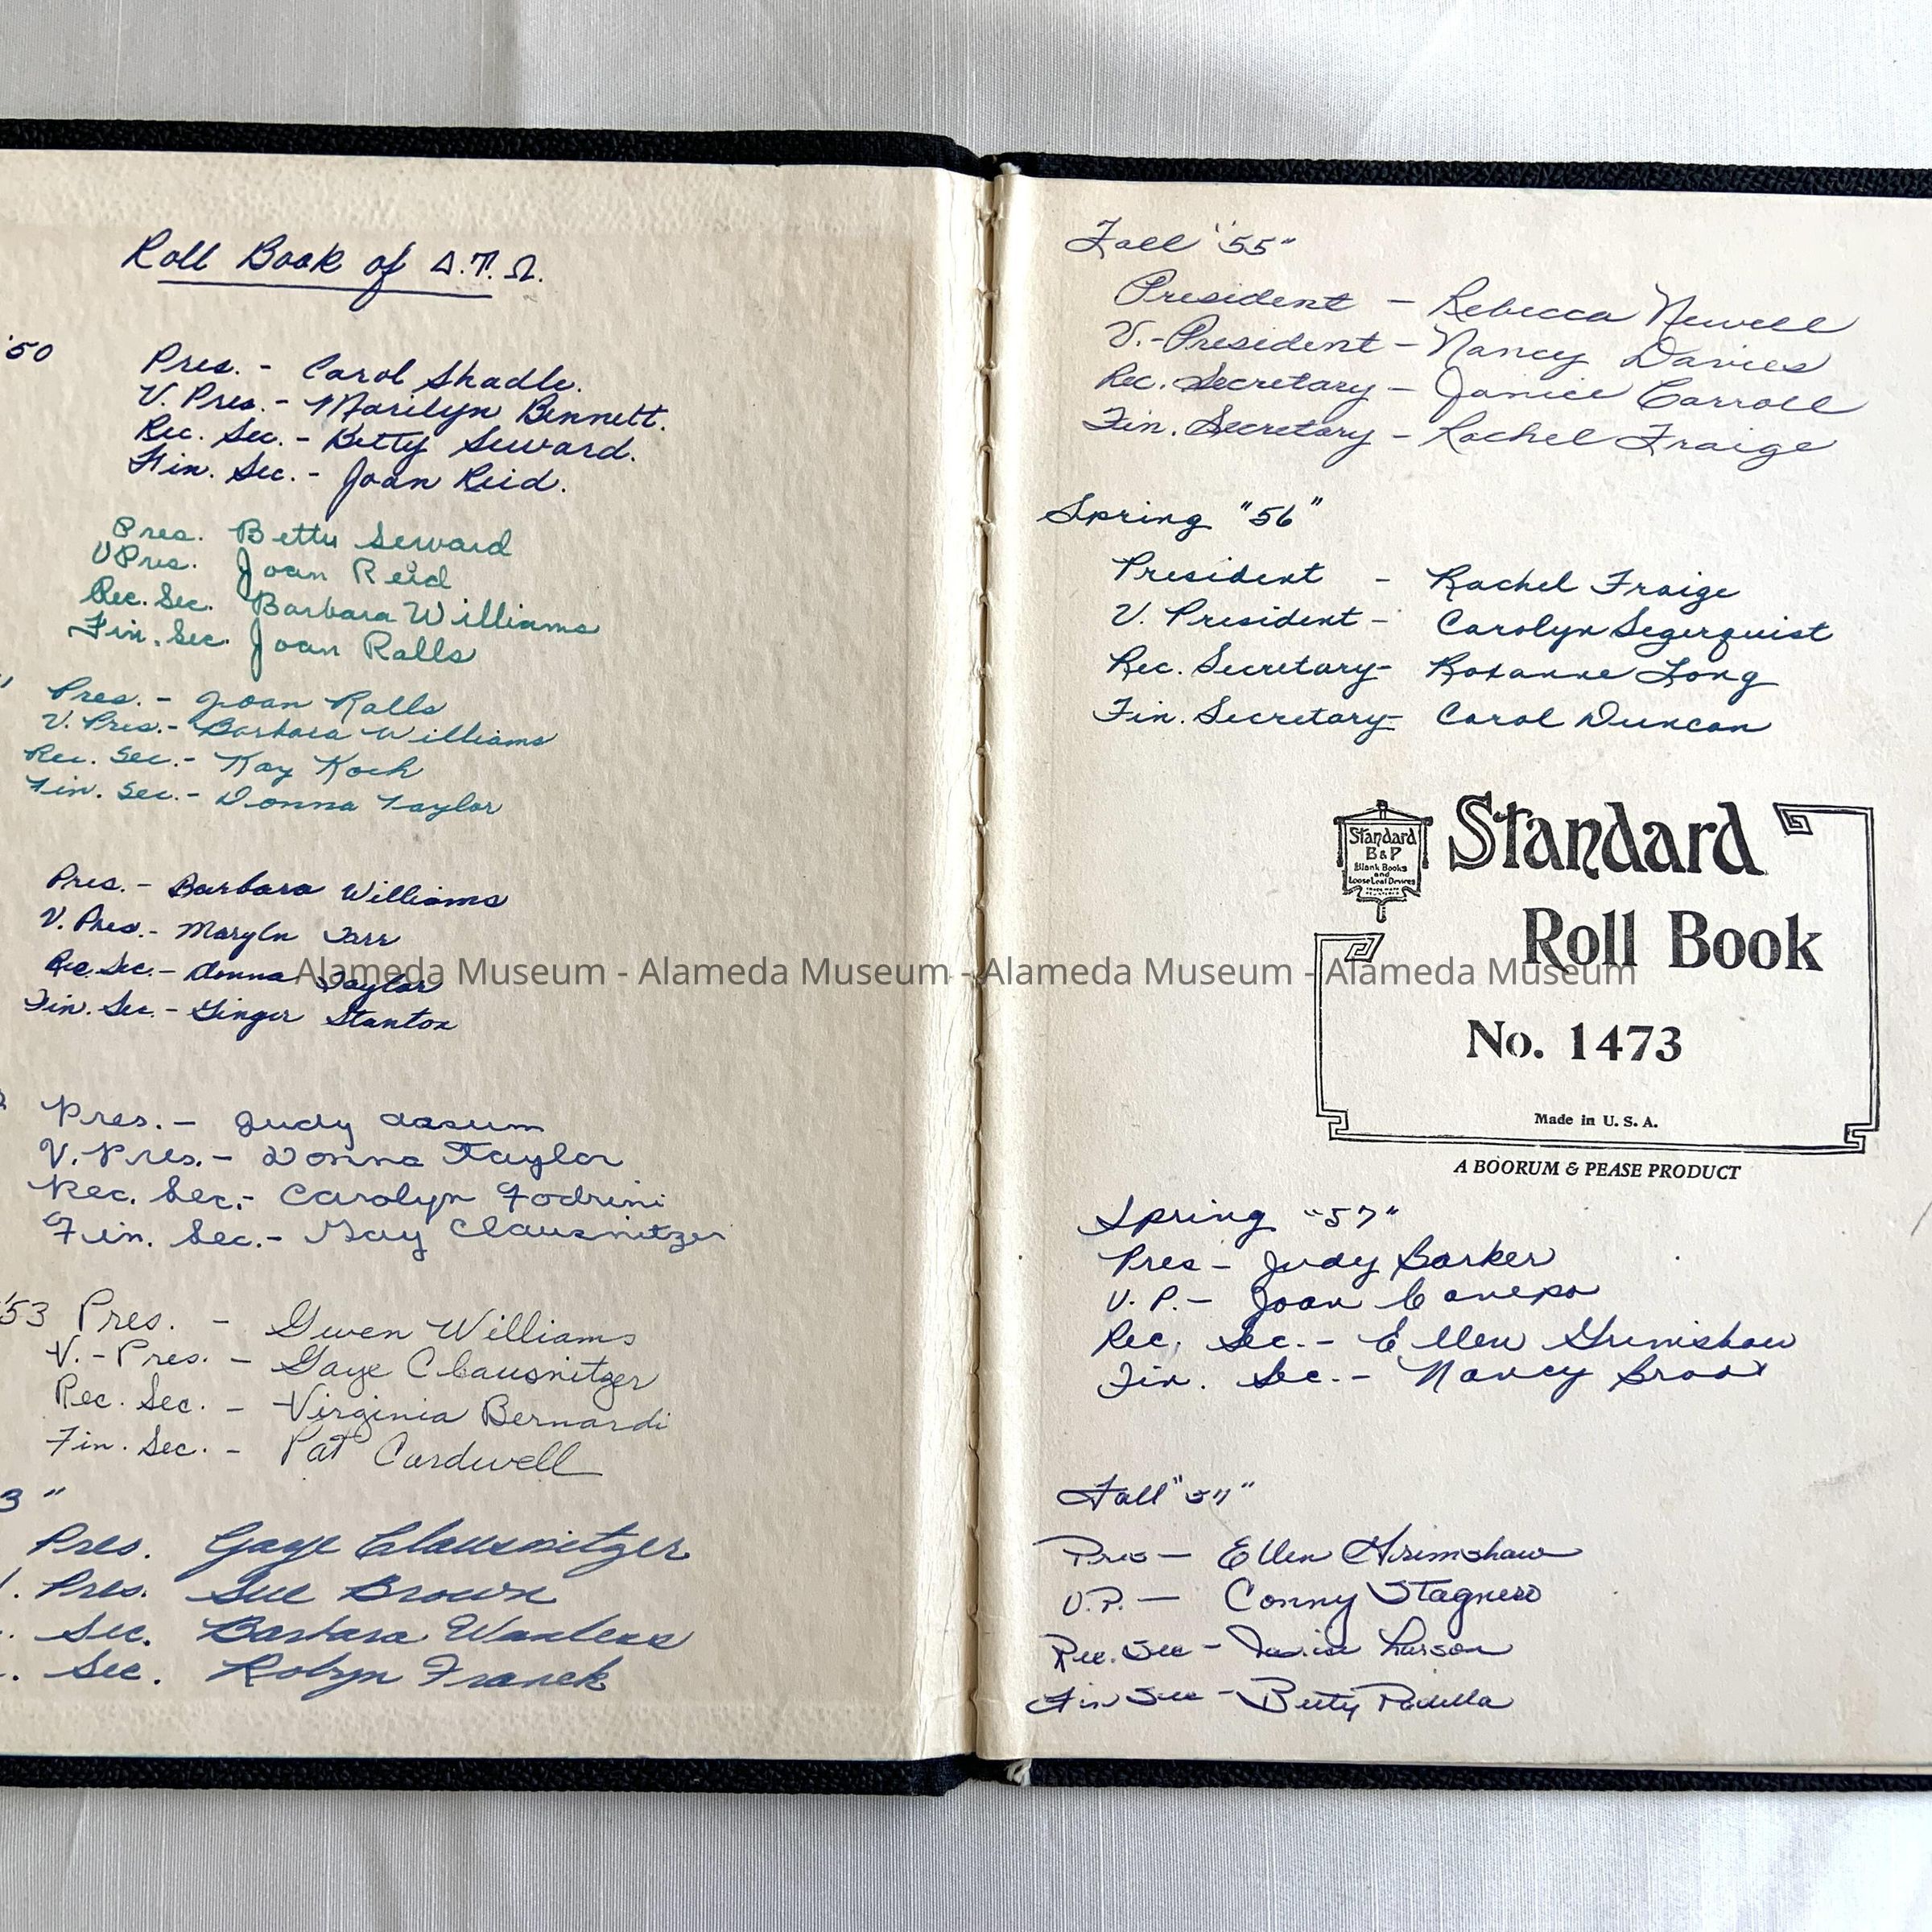 Roll Book of Δ.T.Ω.
'50
Pres. - Carol Shadle.
V. Pres. - Marilyn Bennett.
Rec. Sec. - Betty Seward.
Fin. Sec. - Joan Reid.
Pres. Betty Seward
V Pres. Joan Reid
Rec. Sec. Barbara Williams
Fin. Sec. Joan Ralls
Pres. - Joan Ralls
V. Pres. - Barbara Williams
Rec. Sec. - Kay Koch
Fin. Sec. - Donna Taylor
Pres. - Barbara Williams
V. Pres. - Maryln Tarr
Rec. Sec. - Donna Taylor
Fin. Sec. - Ginger Stanton
Pres. - Judy Aasum
V. Pres. - Donna Taylor
Rec. Sec. - Carolyn Fodrini
Fin. Sec. - Gay Clausnitzer
'53 Pres. - Gwen Williams
V. - Pres. - Gaye Clausnitzer
Rec. Sec. - Virginia Bernardi
Fin. Sec. - Pat Cardwell
3 "
Pres. Gaye Clausnitzer
. Pres. Sue Brown
. Sec. Barbara Wanless
. Sec. Robyn Franck
Fall '55"
President - Rebecca Newell
V. - President - Nancy Davies
Rec. Secretary - Janice Carroll
Fin. Secretary - Rachel Fraige
Spring "56"
President - Rachel Fraige
V. President - Carolyn Segerquist
Rec. Secretary - Roxanne Long
Fin. Secretary - Carol Duncan
Standard
B & P
Blank Books
and
Loose Leaf Devices
TRADE MARK
Standard
Roll Book
No. 1473
Made in U. S. A.
A BOORUM & PEASE PRODUCT
Spring "57"
Pres - Judy Barker
V. P. - Joan Canepa
Rec. Sec. - Ellen Grimshaw
Fin. Sec. - Nancy
Fall "57"
Pres - Ellen Grimshaw
V.P. - Conny Stagnero
Rec. Sec - Janice Larson
Fin Sec - Betty Padilla
Alameda Museum - Alameda Museum - Alameda Museum - Alameda Museum